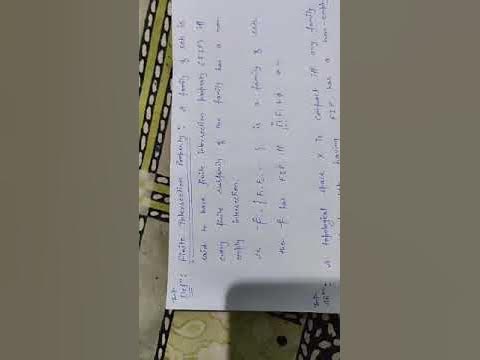 Imp
Defn: Finite Intersection Property: A family of sets is
said to have finite intersection property (FIP) iff
every finite subfamily of the family has a non-
empty intersection.
is a family of sets
then F has FIP iff
Imp
Thm: A topological space X is compact iff any family
having FIP has a non-empty